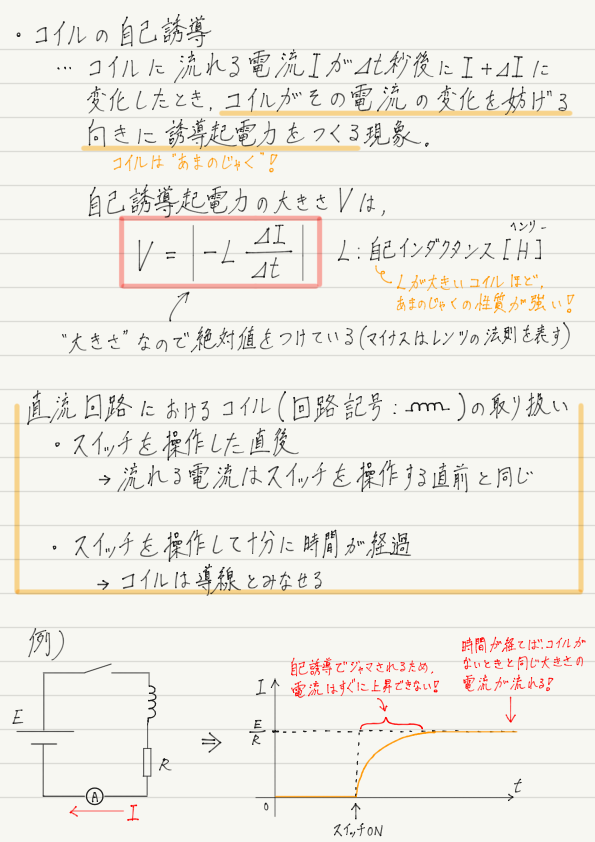 ・コイルの自己誘導
… コイルに流れる電流IがΔt秒後にI+ΔIに
変化したとき、コイルがその電流の変化を妨げる
向きに誘導起電力をつくる現象。
コイルは"あまのじゃく"!
自己誘導起電力の大きさVは、
V = |-L ΔI/Δt|
L:自己インダクタンス[H]
ヘンリー
Lが大きいコイルほど、
あまのじゃくの性質が強い!
"大きさ"なので絶対値をつけている(マイナスはレンツの法則を表す)
直流回路におけるコイル(回路記号: )の取り扱い
・スイッチを操作した直後
→ 流れる電流はスイッチを操作する直前と同じ
・スイッチを操作して十分に時間が経過
→ コイルは導線とみなせる
例)
E
R
A
I
⇒
自己誘導でジャマされるため、
電流はすぐに上昇できない!
時間が経てば、コイルが
ないときと同じ大きさの
電流が流れる!
I
E/R
0
t
スイッチON